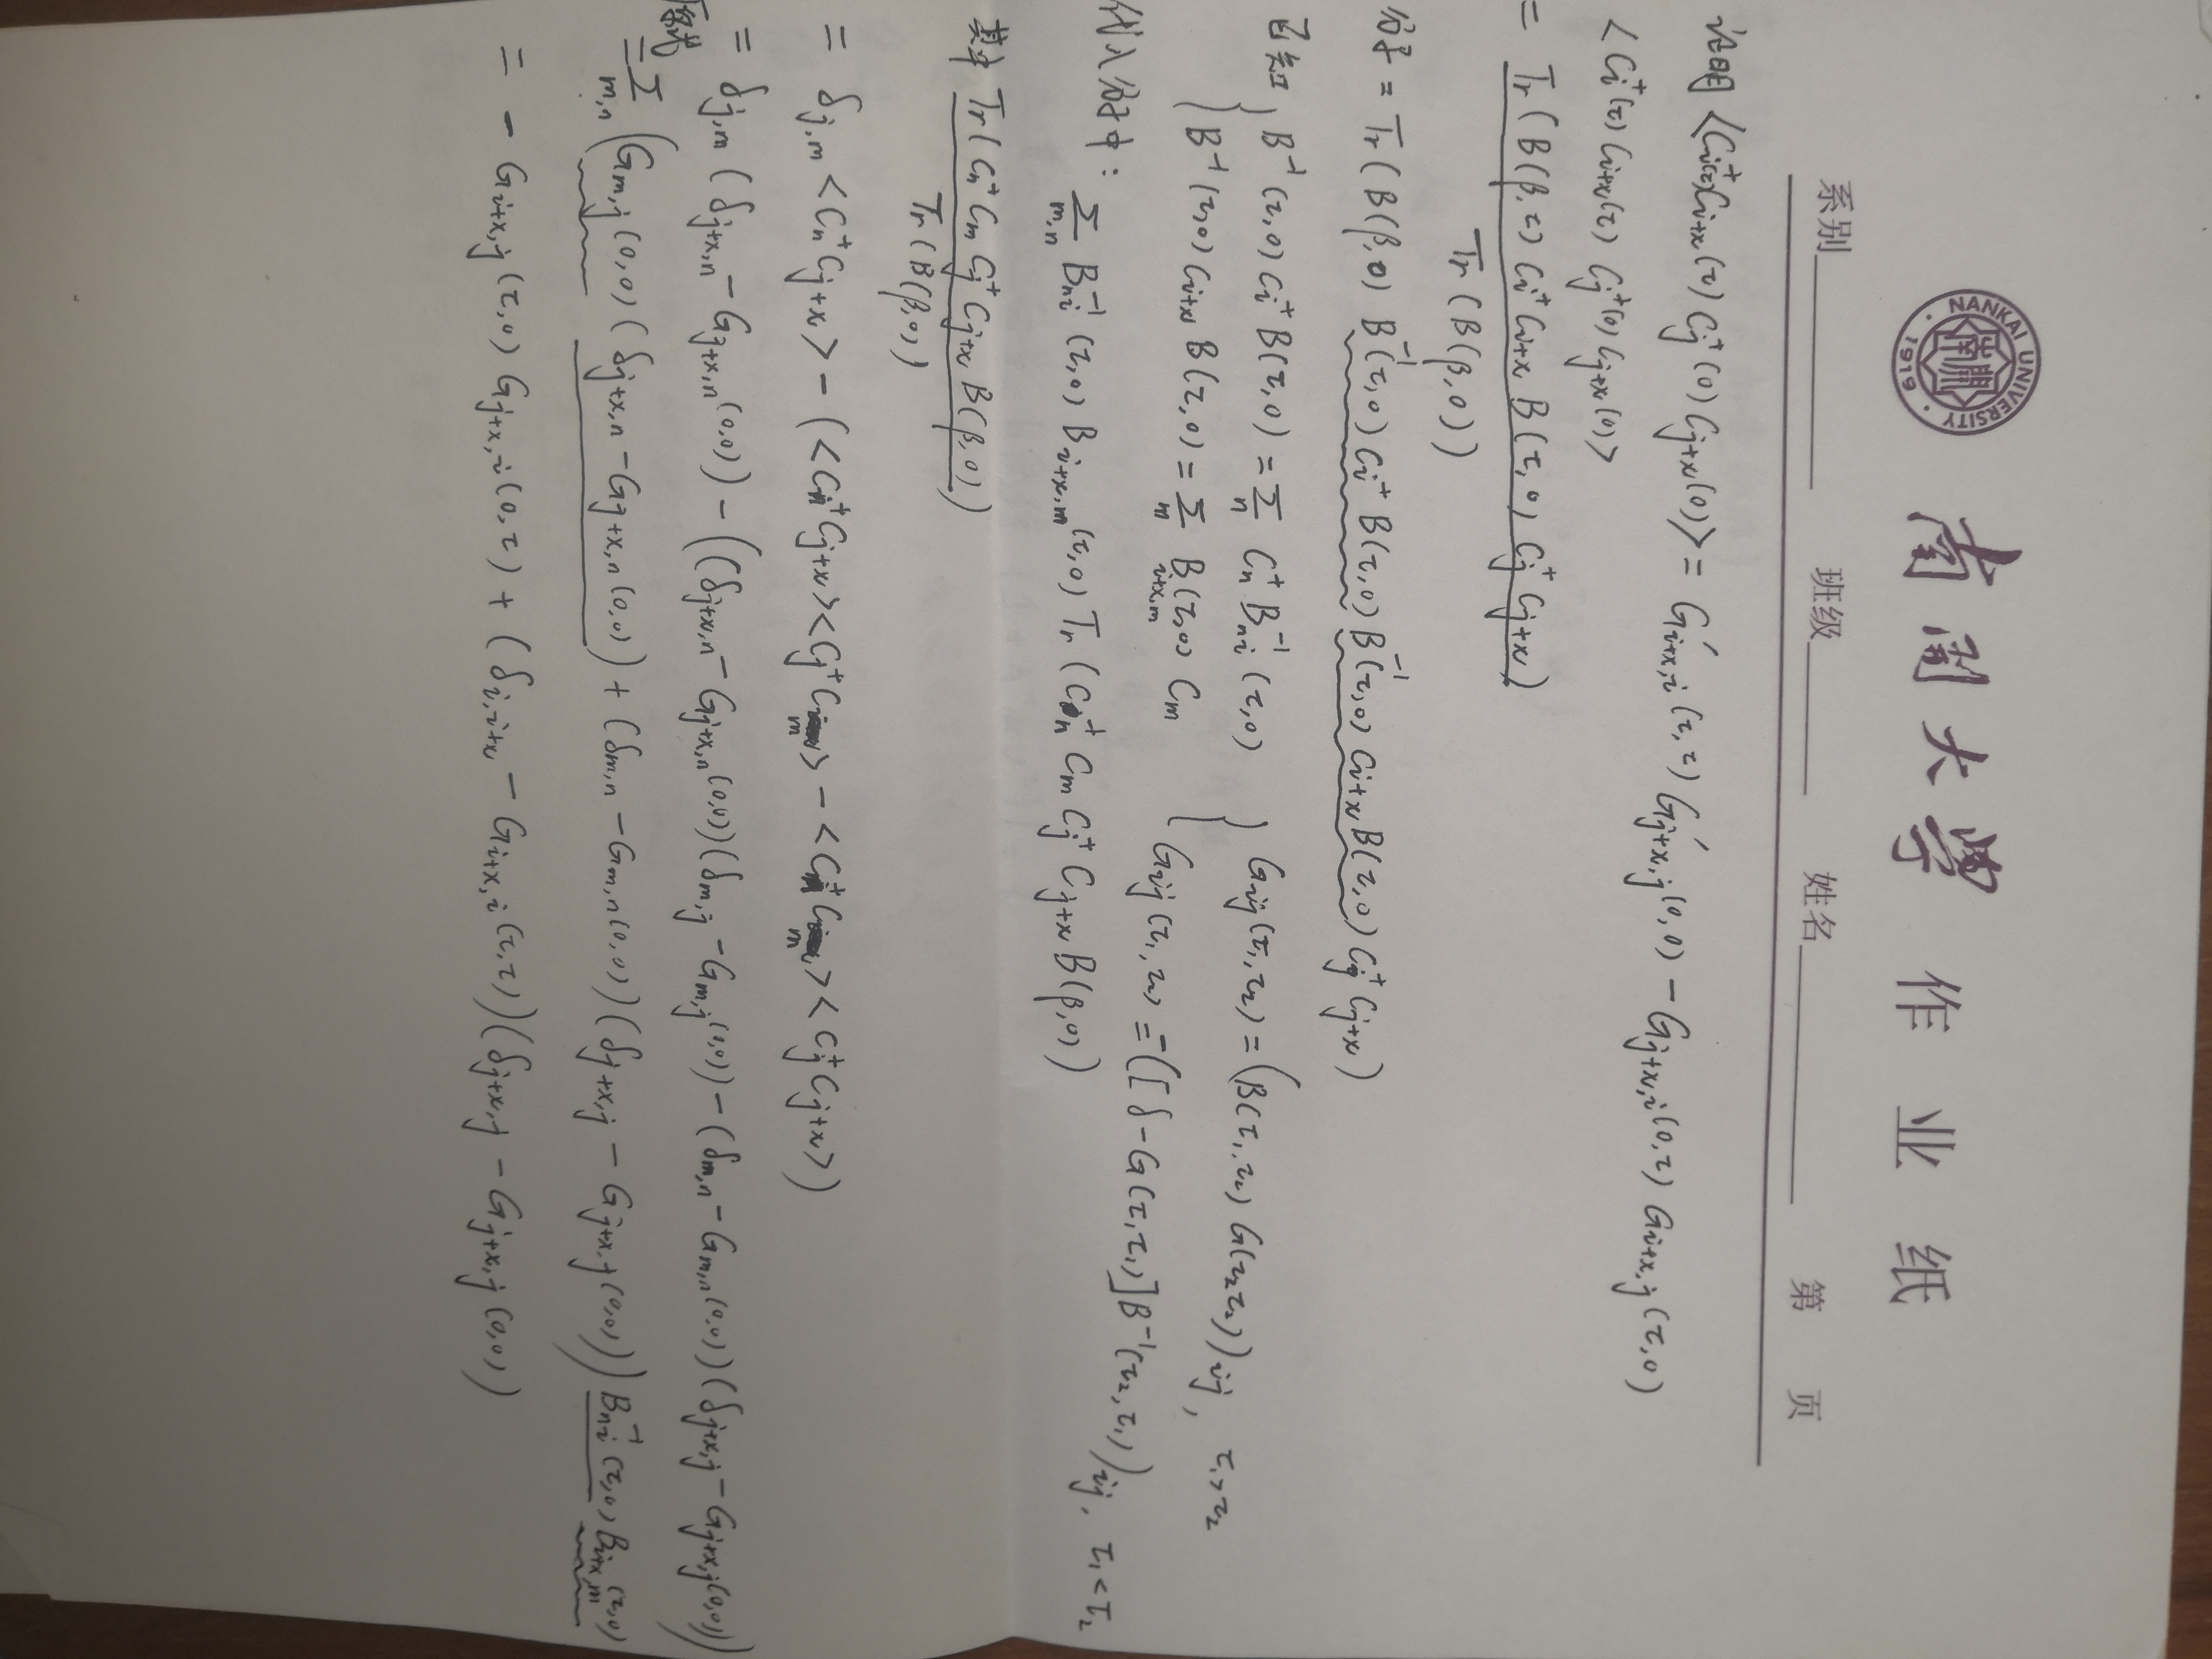 NANKAI UNIVERSITY 1919
南開大學 作业纸
系别 班级 姓名 第 页
证明 <C_i^+(τ) C_{i+x}(τ) C_j^+(0) C_{j+x}(0)> = G'_{i+x,i}(τ,τ) G'_{j+x,j}(0,0) - G_{j+x,i}(0,τ) G_{i+x,j}(τ,0)
<C_i^+(τ) C_{i+x}(τ) C_j^+(0) C_{j+x}(0)>
= Tr(B(β,τ) C_i^+ C_{i+x} B(τ,0) C_j^+ C_{j+x})
Tr(B(β,0))
分子 = Tr(B(β,0) B^{-1}(τ,0) C_i^+ B(τ,0) B^{-1}(τ,0) C_{i+x} B(τ,0) C_j^+ C_{j+x})
已知 { B^{-1}(τ,0) C_i^+ B(τ,0) = Σ_n C_n^+ B_{ni}^{-1}(τ,0)
B^{-1}(τ,0) C_{i+x} B(τ,0) = Σ_m B_{i+x,m}(τ,0) C_m
{ G_{ij}(τ_1,τ_2) = (B(τ_1,τ_2) G(τ_2τ_2))_{ij}, τ_1>τ_2
G_{ij}(τ_1,τ_2) = -([δ-G(τ_1τ_1)]B^{-1}(τ_2,τ_1))_{ij}, τ_1<τ_2
代入分子中:
Σ_{m,n} B_{ni}^{-1}(τ,0) B_{i+x,m}(τ,0) Tr(C_n^+ C_m C_j^+ C_{j+x} B(β,0))
其中 Tr(C_n^+ C_m C_j^+ C_{j+x} B(β,0))
Tr(B(β,0))
= δ_{j,m} <C_n^+ C_{j+x}> - (<C_n^+ C_{j+x}><C_j^+ C_m> - <C_n^+ C_m><C_j^+ C_{j+x}>)
= δ_{j,m} (δ_{j+x,n} - G_{j+x,n}(0,0)) - ((δ_{j+x,n} - G_{j+x,n}(0,0))(δ_{m,j} - G_{m,j}(0,0)) - (δ_{m,n} - G_{m,n}(0,0))(δ_{j+x,j} - G_{j+x,j}(0,0)))
原式 = Σ_{m,n} (G_{m,j}(0,0)(δ_{j+x,n} - G_{j+x,n}(0,0)) + (δ_{m,n} - G_{m,n}(0,0))(δ_{j+x,j} - G_{j+x,j}(0,0))) B_{ni}^{-1}(τ,0) B_{i+x,m}(τ,0)
= - G_{i+x,j}(τ,0) G_{j+x,i}(0,τ) + (δ_{i,i+x} - G_{i+x,i}(τ,τ))(δ_{j+x,j} - G_{j+x,j}(0,0))